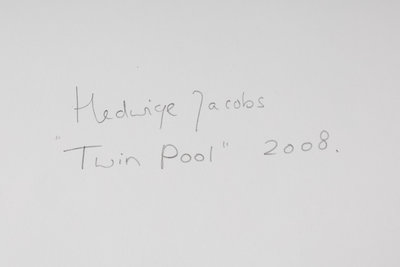 Hedwige Jacobs
"Twin Pool" 2008.